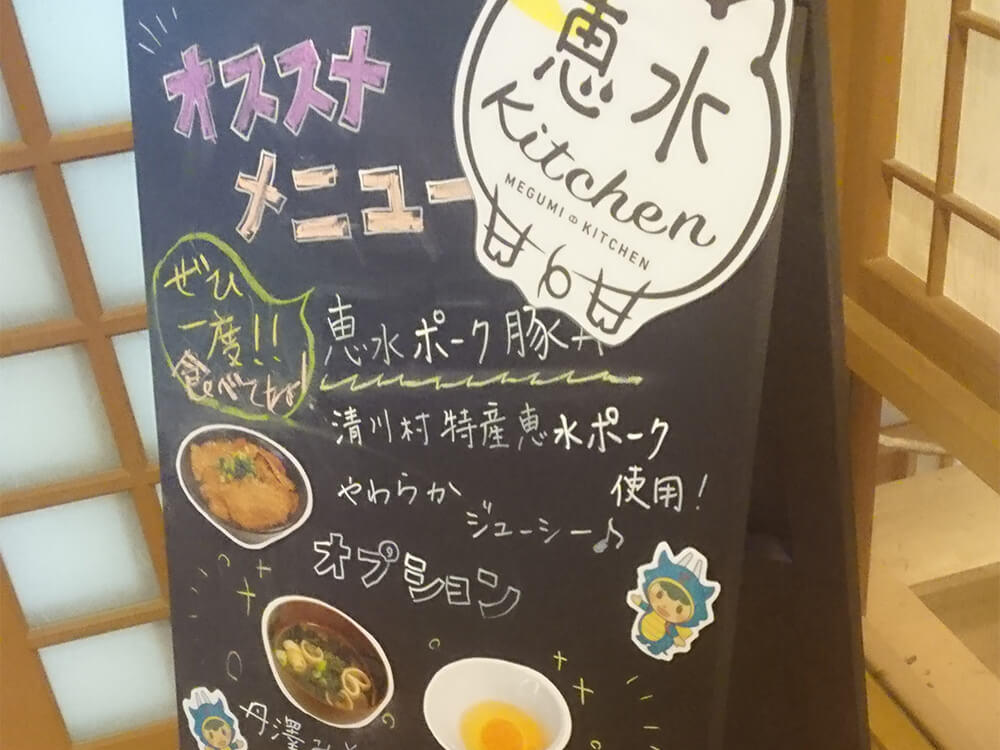 オススメ
メニュー
恵水
Kitchen
MEGUMI の KITCHEN
ぜひ
一度!!
食べてねよ!
恵水ポーク豚丼
清川村特産恵水ポーク
使用!
やわらか
ジューシー♪
オプション
丹澤